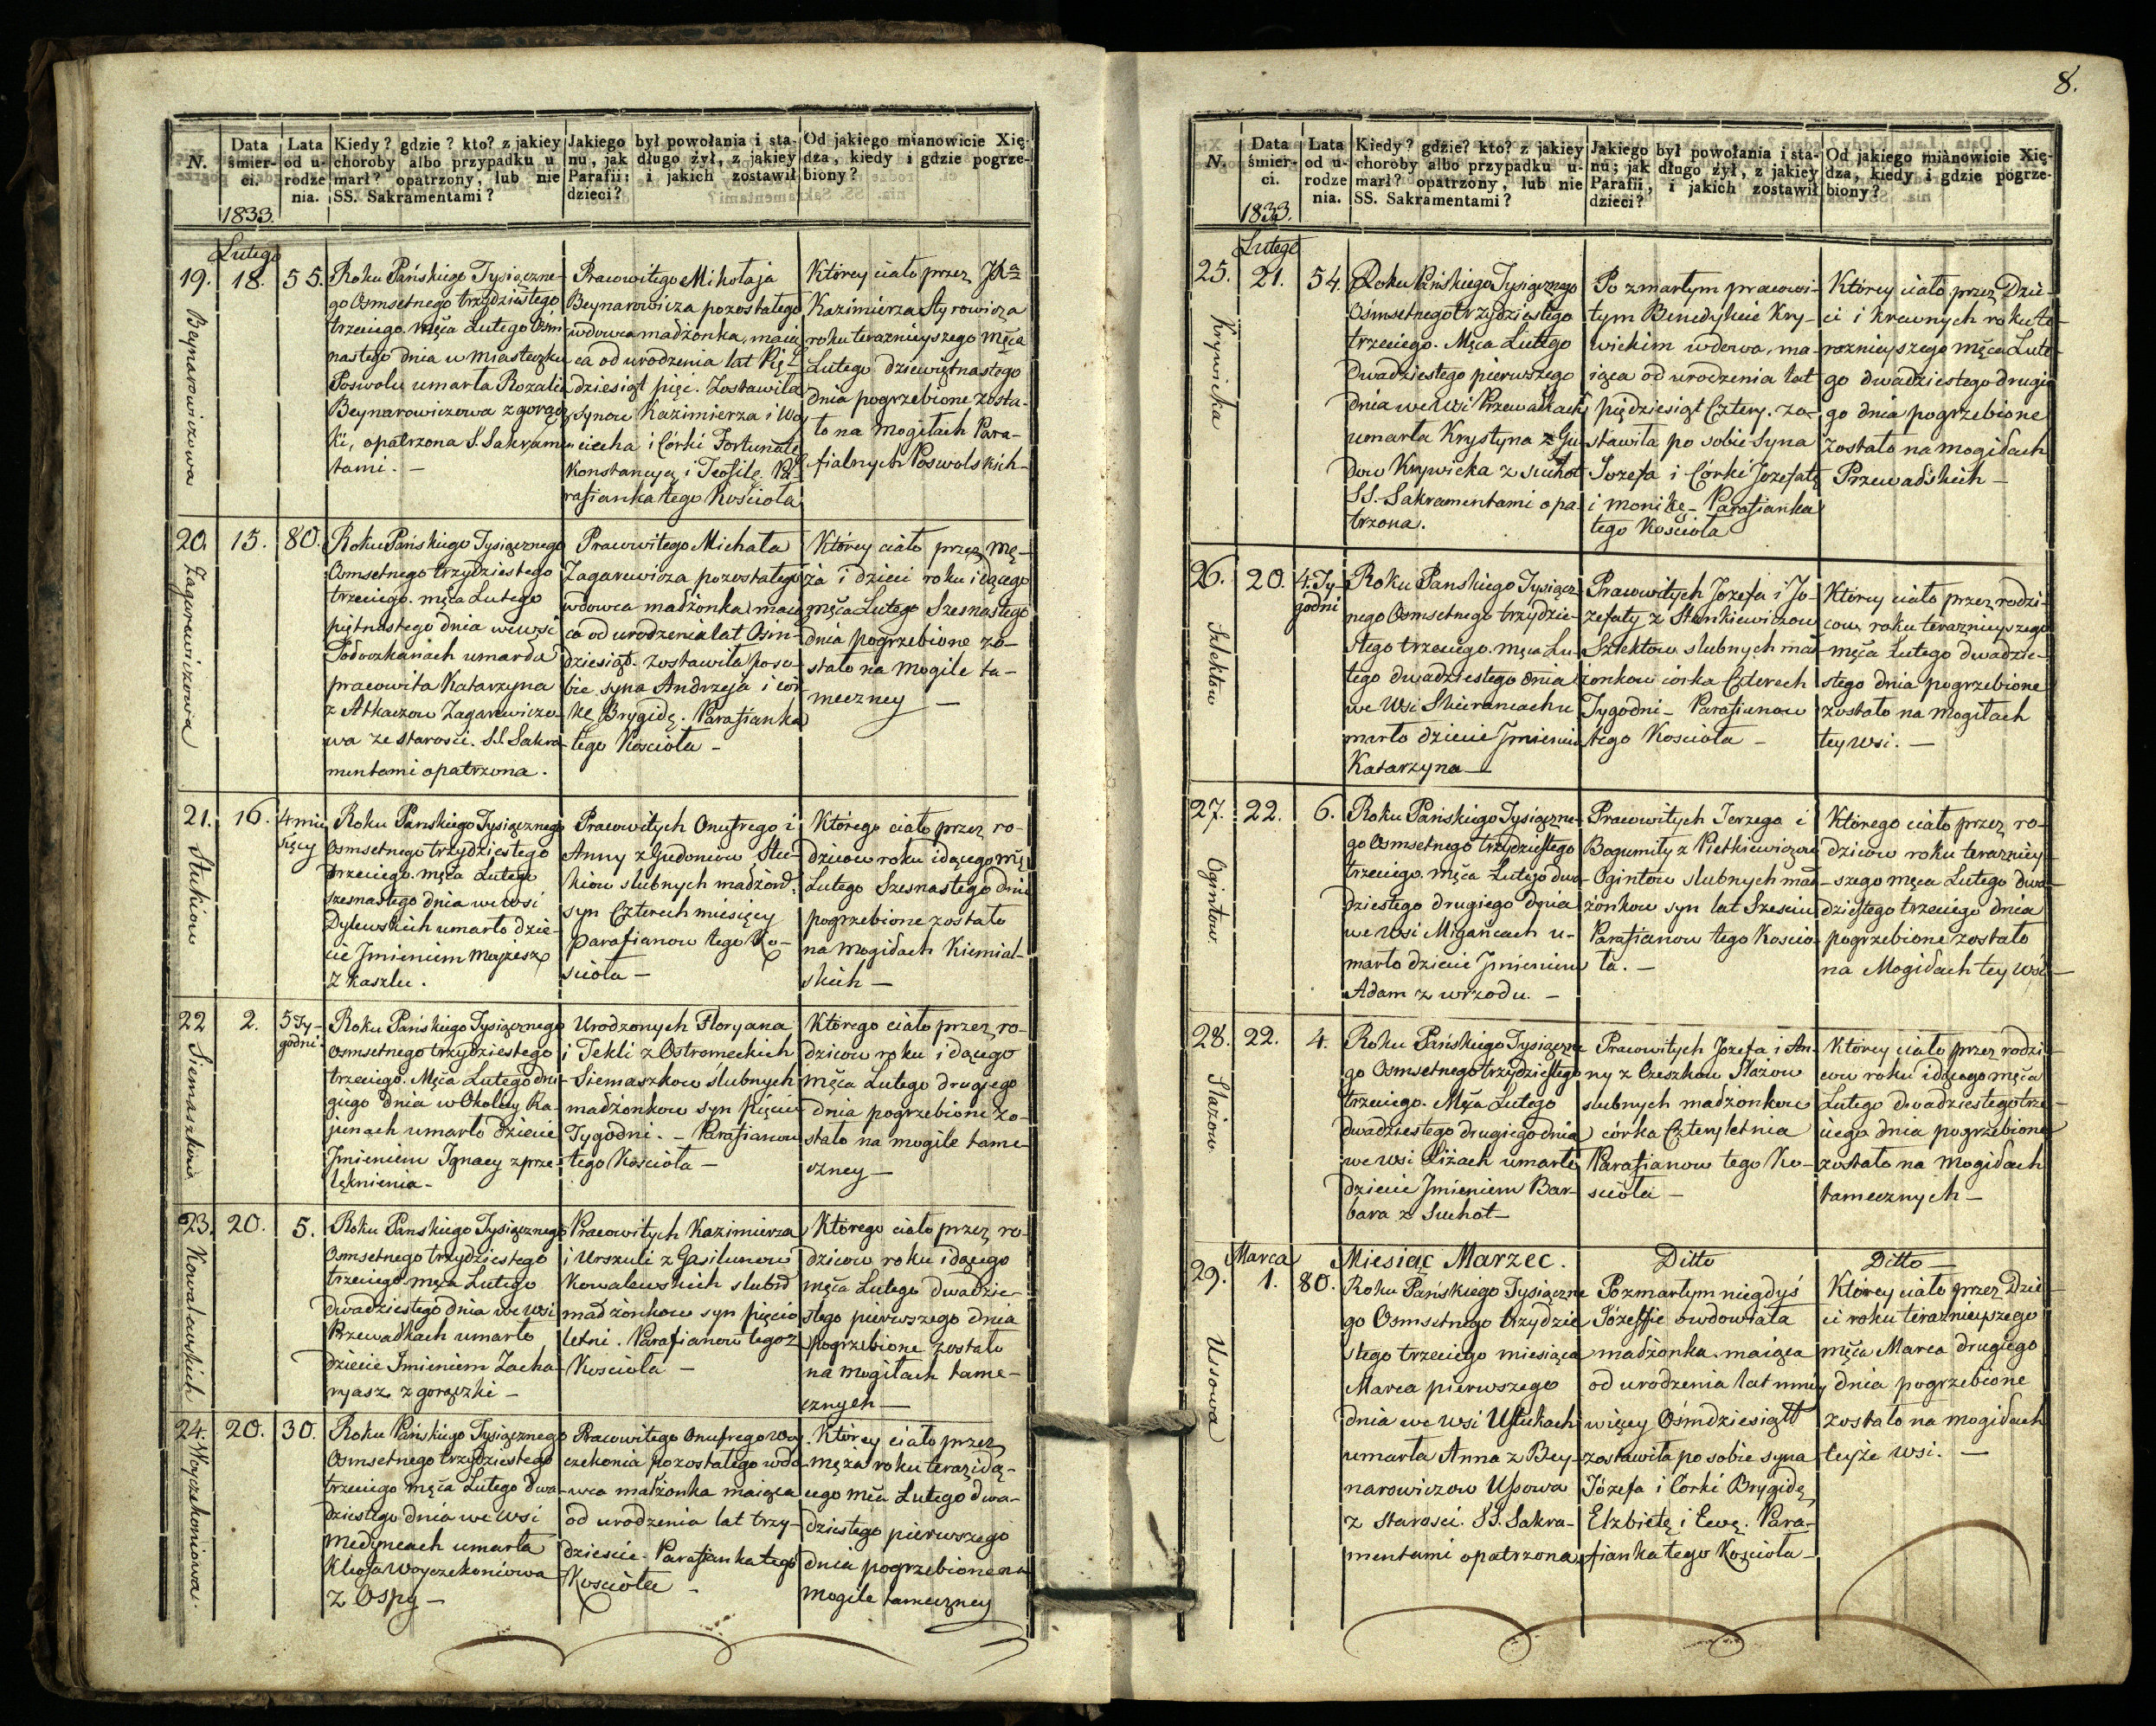 N.
Data śmier- ci.
1833.
Lata od u- rodze nia.
Kiedy? gdzie? kto? z jakiey
choroby albo przypadku u
marł? opatrzony, lub nie
SS. Sakramentami?
Jakiego był powołania i sta-
nu, jak długo żył, z jakiey
Parafii; i jakich zostawił
dzieci?
Od jakiego mianowicie Xię-
dza, kiedy i gdzie pogrze-
biony?
Lutego
19.
Beynarowiczowa
18.
55.
Roku Pańskiego Tysiączne-
go Osmsetnego trzydziestego
trzeciego męca Lutego Ośm
nastego dnia w miasteczku
Poswolu umarła Rozalia
Beynarowiczowa z gorącz
ki, opatrzona S. Sakramen
tami. -
Pracowitego Mikołaja
Beynarowicza pozostałego
wdowca madżonka, maią
ca od urodzenia lat Pię-
dziesiąt pięc. Zostawiła
synow Kazimierza i Woy
ciecha i Córki Fortunatę
Konstancyą i Teofilę. Pa-
rafianka tego Kościoła
Którey ciało przez JXa
Kazimierza Styrowicza
roku teraznieyszego męca
Lutego dziewiętnastego
dnia pogrzebione zosta-
ło na Mogiłach Para-
fialnych Poswolskich-
20.
Zagarewiczowa
15.
80.
Roku Pańskiego Tysiącznego
Osmsetnego trzydziestego
trzeciego. męca Lutego
piętnastego dnia we wsi
Jodoczkaniach umarła
pracowita Katarzyna
z Atkaczow Zagarewiczo-
wa ze starosci. S.S. Sakra-
mentami opatrzona.
Pracowitego Michała
Zagarewicza pozostałego
wdowca madżonka maią
ca od urodzenia lat Osm-
dziesiąt. zostawiła po so-
bie syna Andrzeja i cór
kę Brygidę. Parafianka
tego Kościoła -
Którey ciało przez Mę-
ża i dzieci roku idącego
męca Lutego Szesnastego
dnia pogrzebione zo-
stało na Mogile ta-
meczney —
21.
Stukiow
16.
4 mie
sięcy
Roku Pańskiego Tysiącznego
Osmsetnego trzydziestego
trzeciego. męca Lutego
szesnastego dnia we wsi
Dylewskich umarło dzie-
cie Jmieniem Mojżesz
z Kaszlu.
Pracowitych Onufrego i
Anny z Gudonow Stu-
kiow slubnych madżonk:
syn Czterech miesięcy
Parafianow tego Ko-
scioła -
Którego ciało przez ro-
dzicow roku idącego męc
Lutego Szesnastego dnia
pogrzebione zostało
na Mogiłach Kiemial-
skich —
22
Siemaszkow
2.
5 Ty-
godni.
Roku Pańskiego Tysiącznego
Osmsetnego trzydziestego
trzeciego. Męca Lutego dru-
giego dnia w Okolicy Ra-
junach umarło dziecie
Jmieniem Ignacy z prze-
lęknienia-
Urodzonych Floryana
i Tekli z Ostromeckich
Siemaszkow ślubnych
madżonkow syn pięciu
Tygodni. - Parafianow
tego Kościoła -
Którego ciało przez ro-
dzicow roku idącego
Męca Lutego drugiego
dnia pogrzebione zo-
stało na mogile tame-
czney —
23.
Kowalewskich
20.
5.
Roku Panskiego Tysiącznego
Osmsetnego trzydziestego
trzeciego męca Lutego
dwadziestego dnia we wsi
Przewadkach umarło
dziecie Jmieniem Zacha-
ryasz z gorączki -
Pracowitych Kazimierza
i Urszuli z Gasilunow
Kowalewskich slubn
madżonkow syn pięcio
letni. Parafianow tegoż
Kościoła -
Którego ciało przez ro-
dzicow roku idącego
męca Lutego dwadzie-
stego pierwszego dnia
pogrzebione zostało
na mogiłach tame-
cznych —
24.
Woyczekoniowa.
20.
30.
Roku Pańskiego Tysiącznego
Osmsetnego trzydziestego
trzeciego męca Lutego dwa-
dziestego dnia we wsi
Medyncach umarła
Kleofa Woyczekoniowa
z Ospy —
Pracowitego Onufrego Woy
czekonia pozostałego wdo-
wca małżonka maiąca
od urodzenia lat trzy-
dziescie. Parafianka tego
Kościoła -
Którey ciało przez
męża roku teraz idą-
cego męca Lutego dwa-
dziestego pierwszego
dnia pogrzebione na
Mogile tameczney
8.
N.
Data śmier- ci.
1833.
Lata od u- rodze nia.
Kiedy? gdzie? kto? z jakiey
choroby albo przypadku u-
marł? opatrzony, lub nie
SS. Sakramentami?
Jakiego był powołania i sta-
nu; jak długo żył, z jakiey
Parafii, i jakich zostawił
dzieci?
Od jakiego mianowicie Xię-
dza, kiedy i gdzie pogrze-
biony?
Lutego
25.
Krywicka
21.
54.
Roku Pańskiego Tysiącznego
Ośmsetnego trzydziestego
trzeciego. Męca Lutego
Dwadziestego pierwszego
dnia we wsi Przewadkach
umarła Krystyna z Gu-
dow Krywicka z suchot
SS. Sakramentami opa-
trzona.
Po zmarłym pracowi-
tym Benedykcie Kry-
wickim wdowa, ma-
iąca od urodzenia lat
pędziesiąt Cztery. zo-
stawiła po sobie Syna
Jozefa i Córki Jozefatę
i Monikę - Parafianka
tego Kościoła
Którey ciało przez Dzie-
ci i krewnych roku te-
raznieyszego męca Lute-
go dwadziestego drugie
go dnia pogrzebione
zostało na mogiłach
Przewadskich —
26.
Szlektow
20.
4. Ty-
godni
Roku Panskiego Tysiącz-
nego Osmsetnego trzydzie-
stego trzeciego. męca Lu-
tego dwadziestego dnia
we Wsi Skieraniach u
marło dziecie Jmieniem
Katarzyna —
Pracowitych Jozefa i Jo-
zefaty z Stankiewiczow
Szlektow slubnych mał
żonkow córka Czterech
Tygodni - Parafianow
tego Kościoła -
Którey ciało przez rodzi-
cow roku teraznieyszego
męca Lutego dwadzie-
stego dnia pogrzebione
zostało na Mogiłach
tey wsi. —
27.
Ogintow.
22.
6.
Roku Pańskiego Tysiączne-
go Osmsetnego trzydziestego
trzeciego męca Lutego dwa-
dziestego drugiego dnia
we wsi Migańcach u-
marło dziecie Jmieniem
Adam z wrzodu. -
Pracowitych Jerzego i
Bogumiły z Pietkiewiczow
Ogintow slubnych mał
żonkow syn lat Szesciu
Parafianow tego Koscio-
ła. -
Którego ciało przez ro-
dzicow roku terazniey-
szego męca Lutego dwa-
dziestego trzeciego dnia
pogrzebione zostało
na Mogiłach tey wsi —
28.
Slazow.
22.
4.
Roku Pańskiego Tysiączne
go Osmsetnego trzydziestego
trzeciego. Męca Lutego
dwadziestego drugiego dnia
we wsi Liżach umarło
dziecie Jmieniem Bar-
bara z Suchot—
Pracowitych Jozefa i An-
ny z Czeszkow Slazow
slubnych madżonkow
córka Czteryletnia
Parafianow tego Ko-
scioła -
Którey ciało przez rodzi-
cow roku idącego męca
Lutego dwadziestego trze-
ciego dnia pogrzebione
zostało na Mogiłach
tamecznych —
Marca
Miesiąc Marzec.
Ditto
Ditto —
29.
Ussowa
1.
80.
Roku Pańskiego Tysiączne
go Osmsetnego trzydzie
stego trzeciego miesiąca
Marca pierwszego
dnia we wsi Ustukach
umarła Anna z Bey-
narowiczow Ussowa
z starosci. SS. Sakra-
mentami opatrzona
Po zmarłym niegdyś
Józeffie owdowiała
madżonka. maiąca
od urodzenia lat mniey
więcey Ośmdziesiątt
zostawiła po sobie syna
Józefa i Corki Brygidę,
Elżbietę i Ewę. Para-
fianka tego Kościoła -
Którey ciało przez Dzie-
ci roku teraznieyszego
męca Marca drugiego
dnia pogrzebione
zostało na mogiłach
teyże wsi. —